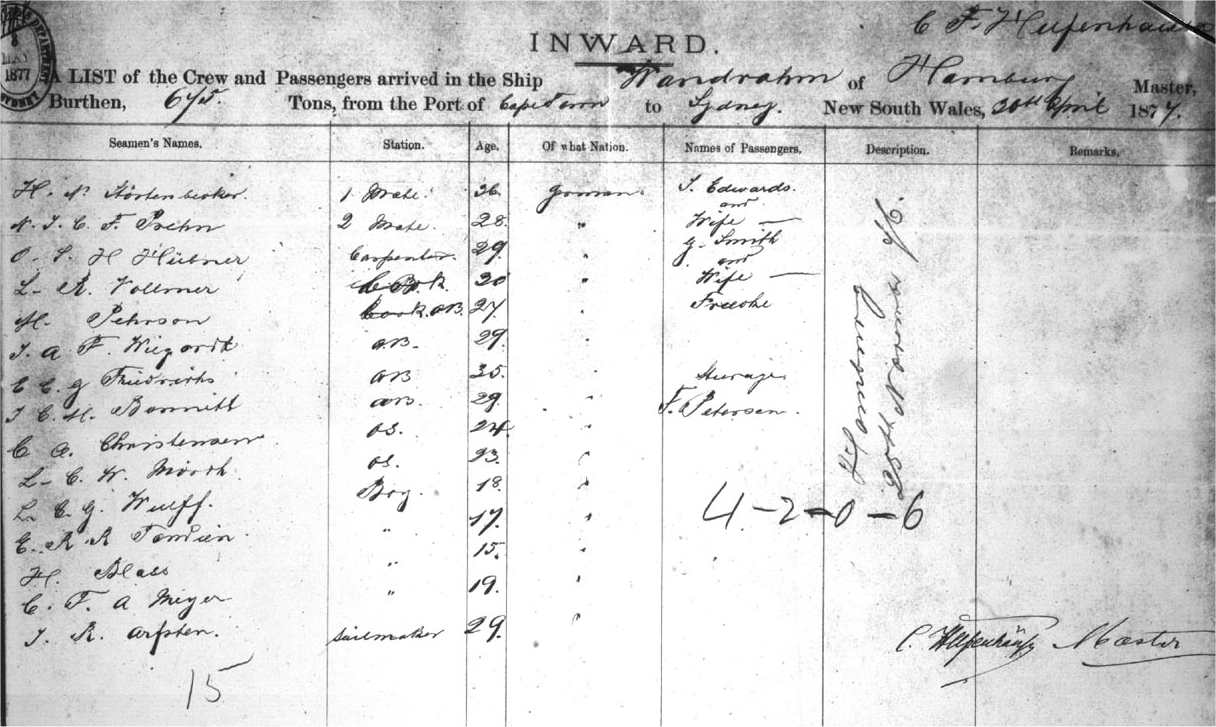 MAY
1877
SYDNEY
INWARD.
A LIST of the Crew and Passengers arrived in the Ship Wandrahm of Hamburg Master,
Burthen, 675. Tons, from the Port of Cape Town to Sydney. New South Wales, 30th April 1877.
Seamen's Names. Station. Age. Of what Nation. Names of Passengers. Description. Remarks.
H. N. 1 Mate. 26. German. J. Edwards.
and
N. J. C. F. Prehn 2 Mate. 28. " Wife —
G. Smith
O. L. H Hübner Carpenter. 29. " and
L. R. Vollmer 20 " Wife —
M. Pehrson Cook AB. 27. " Freeohe
J. A F. Wiegardt AB. 29. "
C C G Friedrichs AB 25. " Steerage
J C. M. AB. 29. " F. Petersen.
C A. Christensen OS. 24. "
L. C. W. OS. 23. "
L. C. G. Wulff. Boy. 18. "
E. R R " 17. "
H. Blass " 15. "
C. F. A Meyer " 19. "
J. R. Sailmaker 29. "
Hamburg
4-2-0-6
C. Master
15